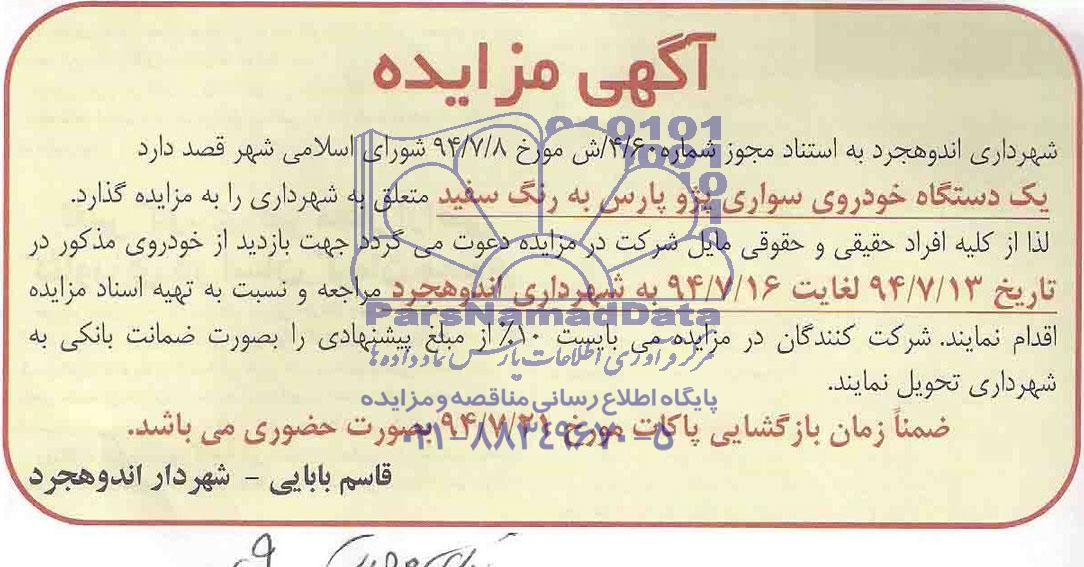 آگهی مزایده
شهرداری اندوهجرد به استناد مجوز شماره ۴/۶۰/ش مورخ ۹۴/۷/۸ شورای اسلامی شهر قصد دارد
یک دستگاه خودروی سواری پژو پارس به رنگ سفید متعلق به شهرداری را به مزایده گذارد.
لذا از کلیه افراد حقیقی و حقوقی مایل شرکت در مزایده دعوت می گردد جهت بازدید از خودروی مذکور در
تاریخ ۹۴/۷/۱۳ لغایت ۹۴/۷/۱۶ به شهرداری اندوهجرد مراجعه و نسبت به تهیه اسناد مزایده
اقدام نمایند. شرکت کنندگان در مزایده می بایست ۱۰٪ از مبلغ پیشنهادی را بصورت ضمانت بانکی به
شهرداری تحویل نمایند.
ضمناً زمان بازگشایی پاکات مورخ ۹۴/۷/۲۱ بصورت حضوری می باشد.
قاسم بابایی - شهردار اندوهجرد
ParsNamadData
مرکز فرآوری اطلاعات پارس نماد داده ها
پایگاه اطلاع رسانی مناقصه و مزایده
۰۲۱-۸۸۳۴۹۶۷۰-۵